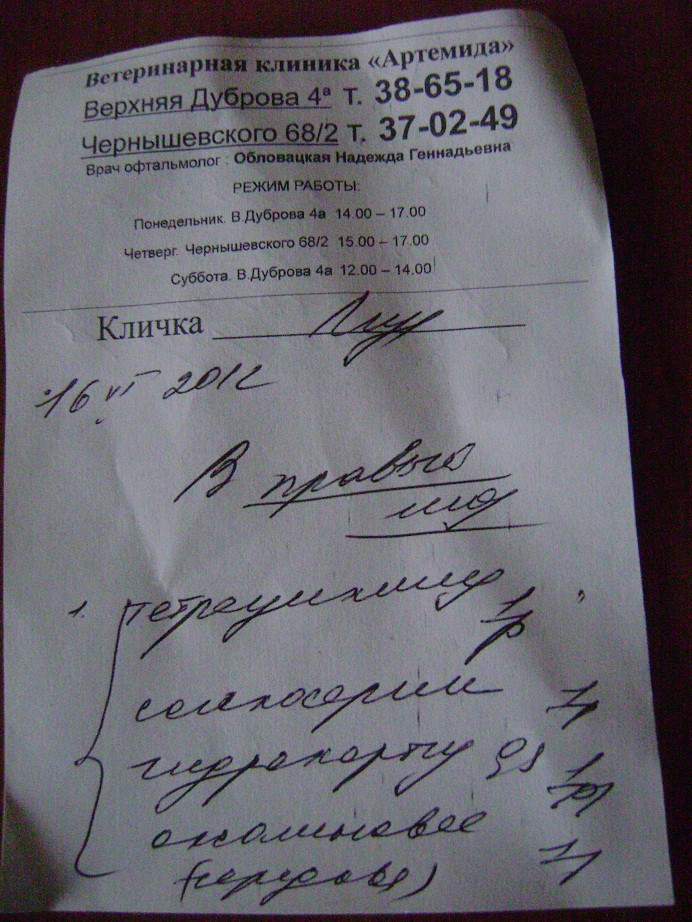 Ветеринарная клиника «Артемида»
Верхняя Дуброва 4ª т. 38-65-18
Чернышевского 68/2 т. 37-02-49
Врач офтальмолог : Обловацкая Надежда Геннадьевна
РЕЖИМ РАБОТЫ:
Понедельник. В Дуброва 4а 14.00 – 17.00
Четверг. Чернышевского 68/2 15.00 – 17.00
Суббота. В.Дуброва 4а 12.00 – 14.00
Кличка
16 VI 2012
В правый
1. тетрациклин
солкосерил
гидрокорт 0,5
оксолиновая